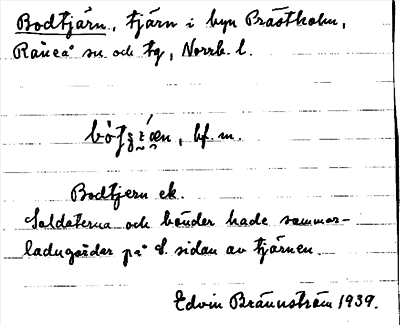 Bodtjärn, tjärn i byn Prästholm,
Råneå sn. och tg, Norrb. l.
bf. m.
Bodtjern ek.
Soldaterna och bönder hade sommar-
ladugårdar på S. sidan av tjärnen.
Edvin Brännström 1939.